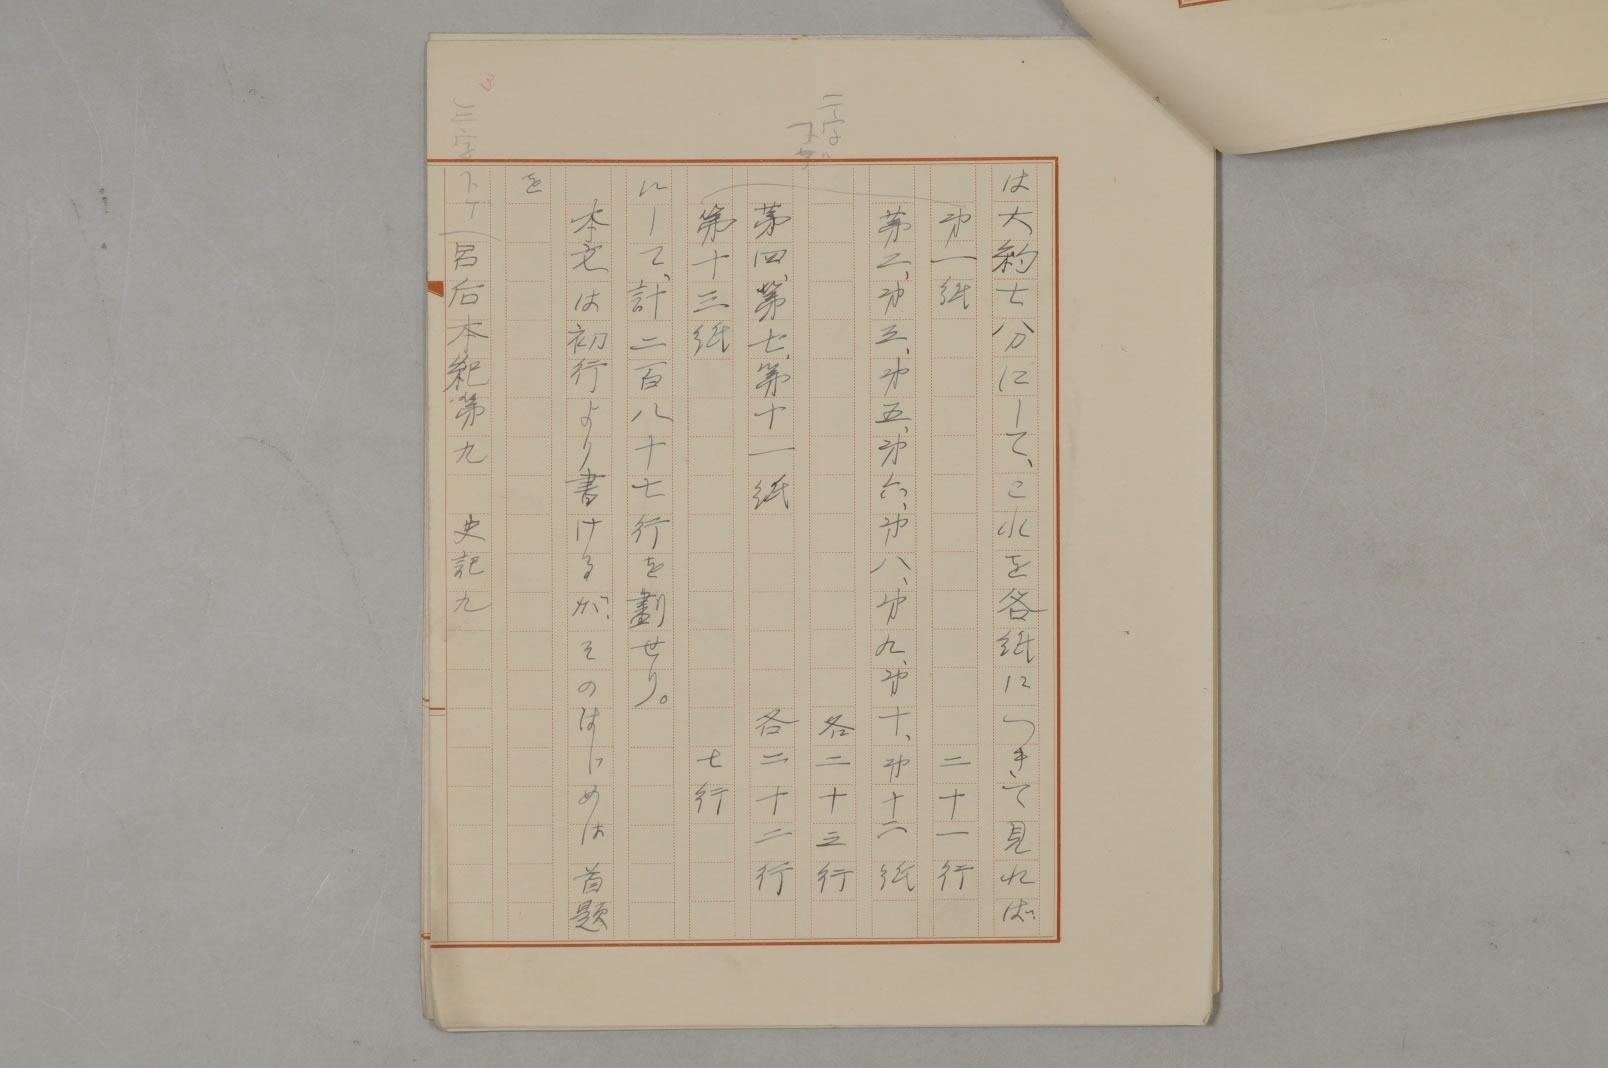 は大約七分にして、これを各紙につきて見れば
第一紙　二十一行
第二、第三、第五、第六、第八、第九、第十、第十二紙
各二十三行
第四、第七、第十一紙　各二十二行
第十三紙　七行
にして、計二百八十七行を劃せり。
本文は初行より書けるが、そのはじめは首題
を
三字下ケ
呂后本紀第九　史記九
二字
下ケ
3